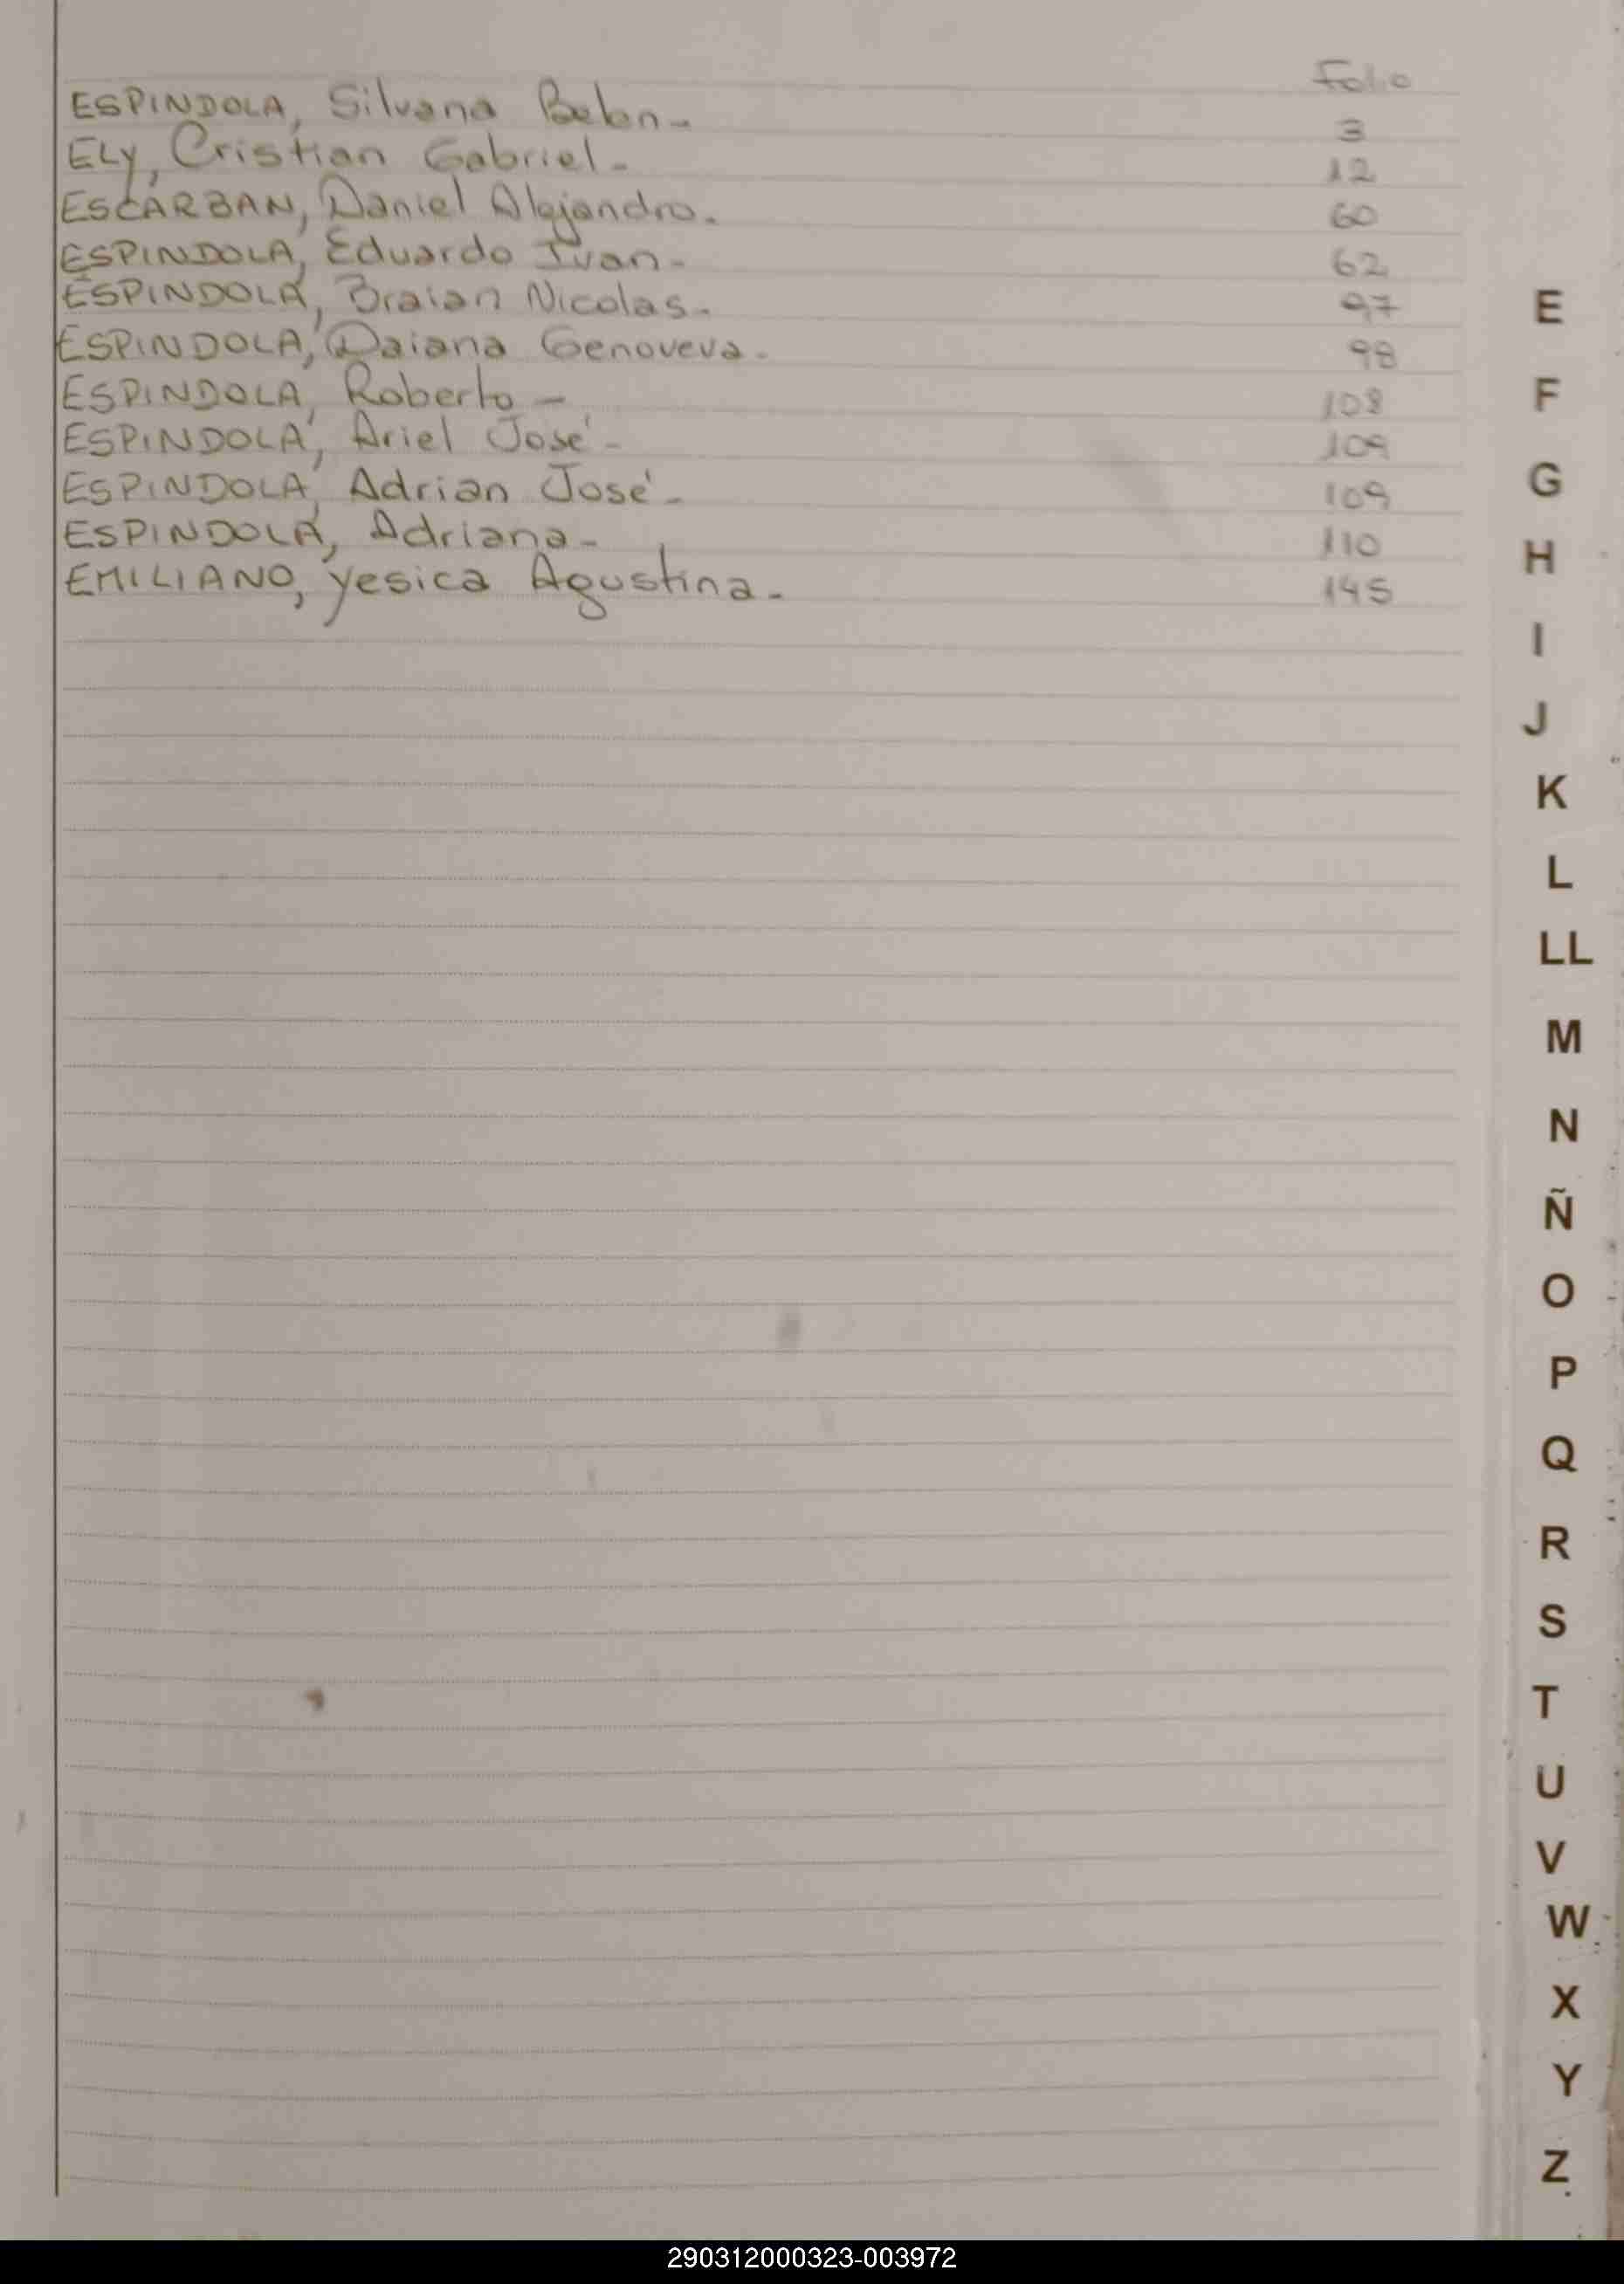 Folio
ESPINDOLA, Silvana Belen- 3
ELy, Cristian Gabriel- 12
ESCARBAN, Daniel Alejandro. 60
ESPINDOLA, Eduardo Ivan- 62
ESPINDOLA, Braian Nicolas- 97
ESPINDOLA, Daiana Genoveva- 98
ESPINDOLA, Roberto- 108
ESPINDOLA, Ariel José- 109
ESPINDOLA, Adrian José- 109
ESPINDOLA, Adriana- 110
EMILIANO, yesica Agustina- 145
E
F
G
H
I
J
K
L
LL
M
N
Ñ
O
P
Q
R
S
T
U
V
W
X
Y
Z
290312000323-003972